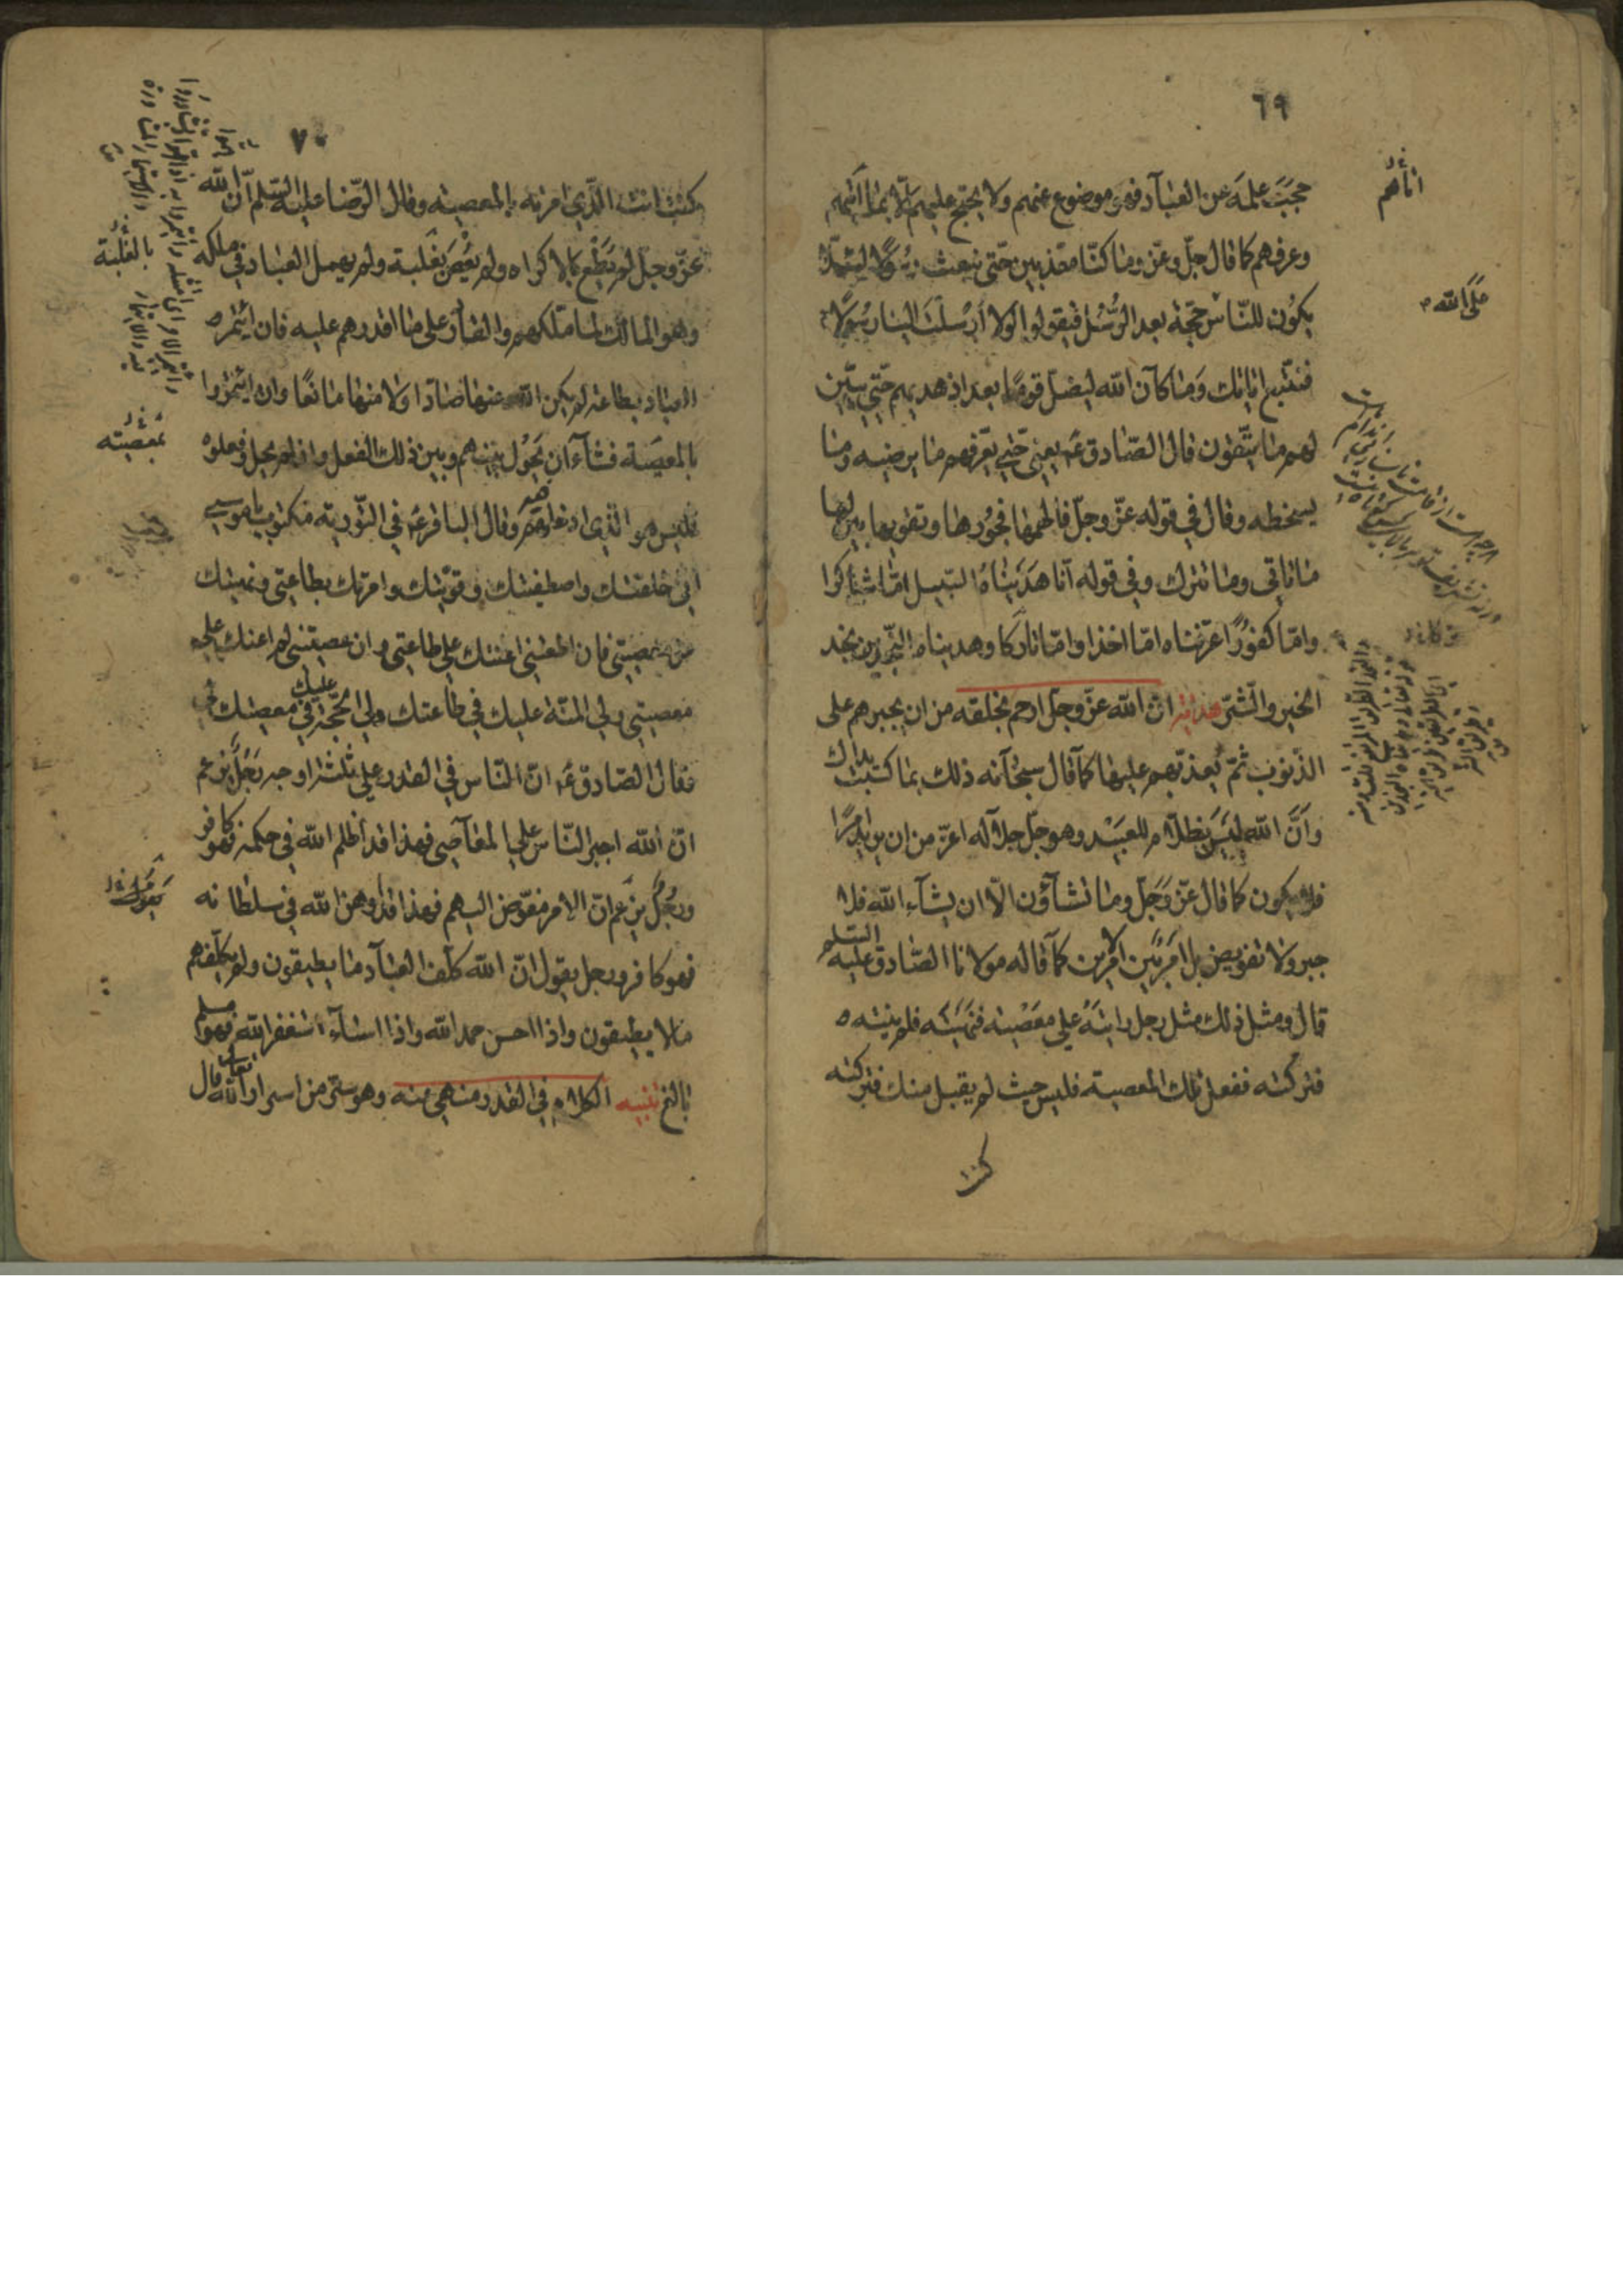 ٦٩
حجب علمه عن العباد فهو موضوع عنهم ولا يحتج عليهم الّا بما آتيهم
وعرفهم كما قال جلّ وعزّ وما كنّا معذبين حتّى نبعث رسولًا لئلّا
يكون للنّاس حجّة بعد الرّسل فيقولوا لولا أرسلت الينا رسولًا
فنتّبع اياتك وما كان الله ليضلّ قومًا بعد اذ هديهم حتّى يبيّن
لهم ما يتّقون قال الصّادق ع يعنى حتّى يعرّفهم ما يرضيه وما
يسخطه وقال في قوله عزّ وجلّ فألهمها فجورها وتقويها بين لها
ما تاتي وما تترك وفي قوله انّا هديناه السّبيل امّا شاكرا
وامّا كفورًا عرّفناه امّا اخذا وامّا تاركا وهديناه النّجدين نجد
الخير والشّرّ هداية انّ الله عزّ وجلّ ارحم بخلقه من ان يجبرهم على
الذّنوب ثمّ يعذّبهم عليها كما قال سبحانه ذلك بما كسبت يداك
وأنّ الله ليس بظلّام للعبيد وهو جلّ جلاله اعزّ من ان يريد امرًا
فلا يكون كما قال عزّ وجلّ وما تشاؤن الّا ان يشاء الله فلا
جبر ولا تفويض بل امر بين الامرين كما قاله مولانا الصّادق عليه السّلم
قال ومثل ذلك مثل رجل رايته على معصية فنهيته فلم ينته
فتركته ففعل تلك المعصية فليس حيث لم يقبل منك فتركته
كنت
اتاهم
صلى الله
٧٠
كنت انت الّذي امرته بالمعصية وقال الرّضا عليه السّلم انّ الله
عزّ وجلّ لم يطع بالاكراه ولم يعص بغلبة ولم يهمل العباد في ملكه
وهو المالك لما ملّكهم والقادر على ما اقدرهم عليه فان ائتمر
العباد بطاعته لم يكن الله عنها صادّا ولا منها مانعًا وان ائتمروا
بالمعصية فشاء ان يحول بينهم وبين ذلك الفعل وان لم يحل وفعلوه
فليس هو الّذي ادخلهم فيه وقال الباقر ع في التّورية مكتوب يا موسى
انى خلقتك واصطفيتك وقوّيتك وامرتك بطاعتى ونهيتك
عن معصيتى فان اطعتنى اعنتك على طاعتى وان عصيتنى لم اعنك على
معصيتى ولى المنّة عليك في طاعتك ولى الحجّة عليك في معصيتك
فقال الصّادق ع انّ النّاس في القدر على ثلثة اوجه رجل يزعم
انّ الله اجبر النّاس على المعاصى فهذا قد اظلم الله في حكمه فهو كافر
ورجل يزعم انّ الامر مفوّض اليهم فهذا قد اوهن الله في سلطانه
فهو كافر ورجل يقول انّ الله كلّف العباد ما يطيقون ولم يكلّفهم
ما لا يطيقون واذا احسن حمد الله واذا اساء استغفر الله فهو مسلم
بالغ تنبيه الكلام في القدر منهىّ عنه وهو سرّ من اسرار الله تعالى قال
بالغلبة
بمعصيته